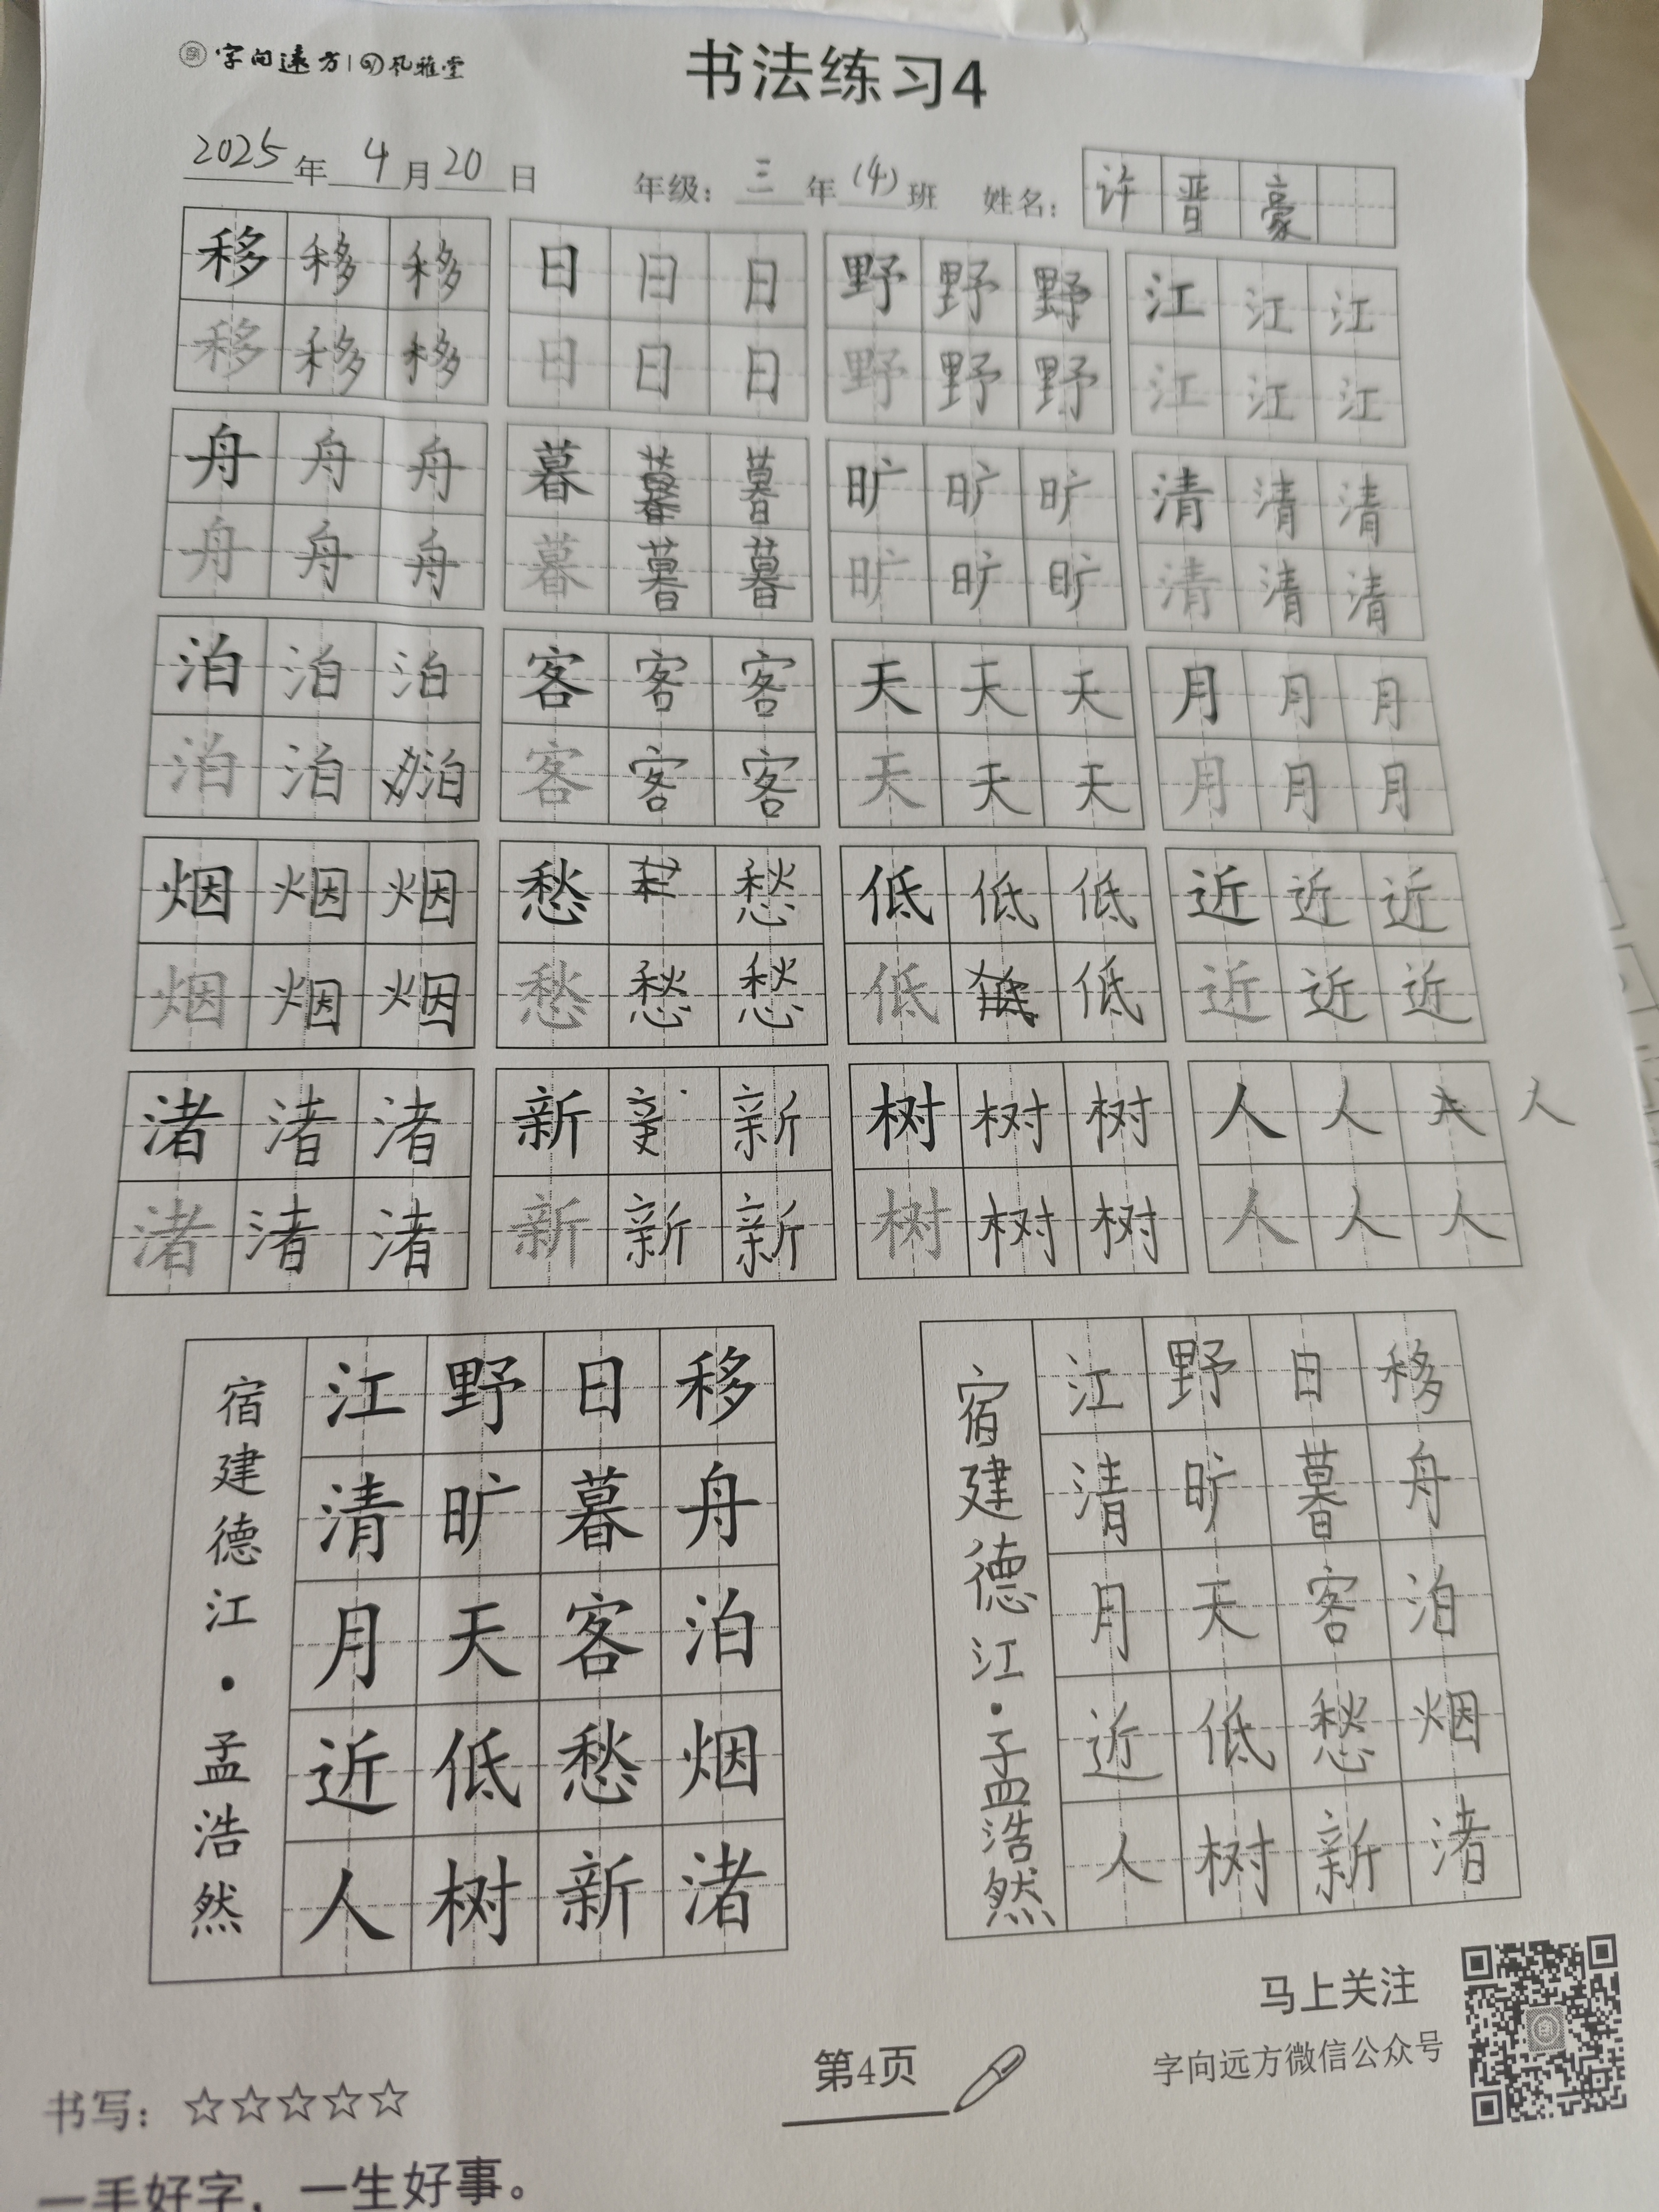 字向远方 | 风雅堂
书法练习4
2025年 4月20日 年级：三年(4)班 姓名：许晋豪
移移移 日日日 野野野 江江江
移移移 日日日 野野野 江江江
舟舟舟 暮暮暮 旷旷旷 清清清
舟舟舟 暮暮暮 旷旷旷 清清清
泊泊泊 客客客 天天天 月月月
泊泊泊 客客客 天天天 月月月
烟烟烟 愁愁 低低低 近近近
烟烟烟 愁愁愁 低低低 近近近
渚渚渚 新新 树树树 人人人
渚渚渚 新新新 树树树 人人人
移舟泊烟渚
日暮客愁新
野旷天低树
江清月近人
宿建德江·孟浩然
移舟泊烟渚
日暮客愁新
野旷天低树
江清月近人
宿建德江·孟浩然
马上关注
字向远方微信公众号
第4页
书写：☆☆☆☆☆
一手好字，一生好事。